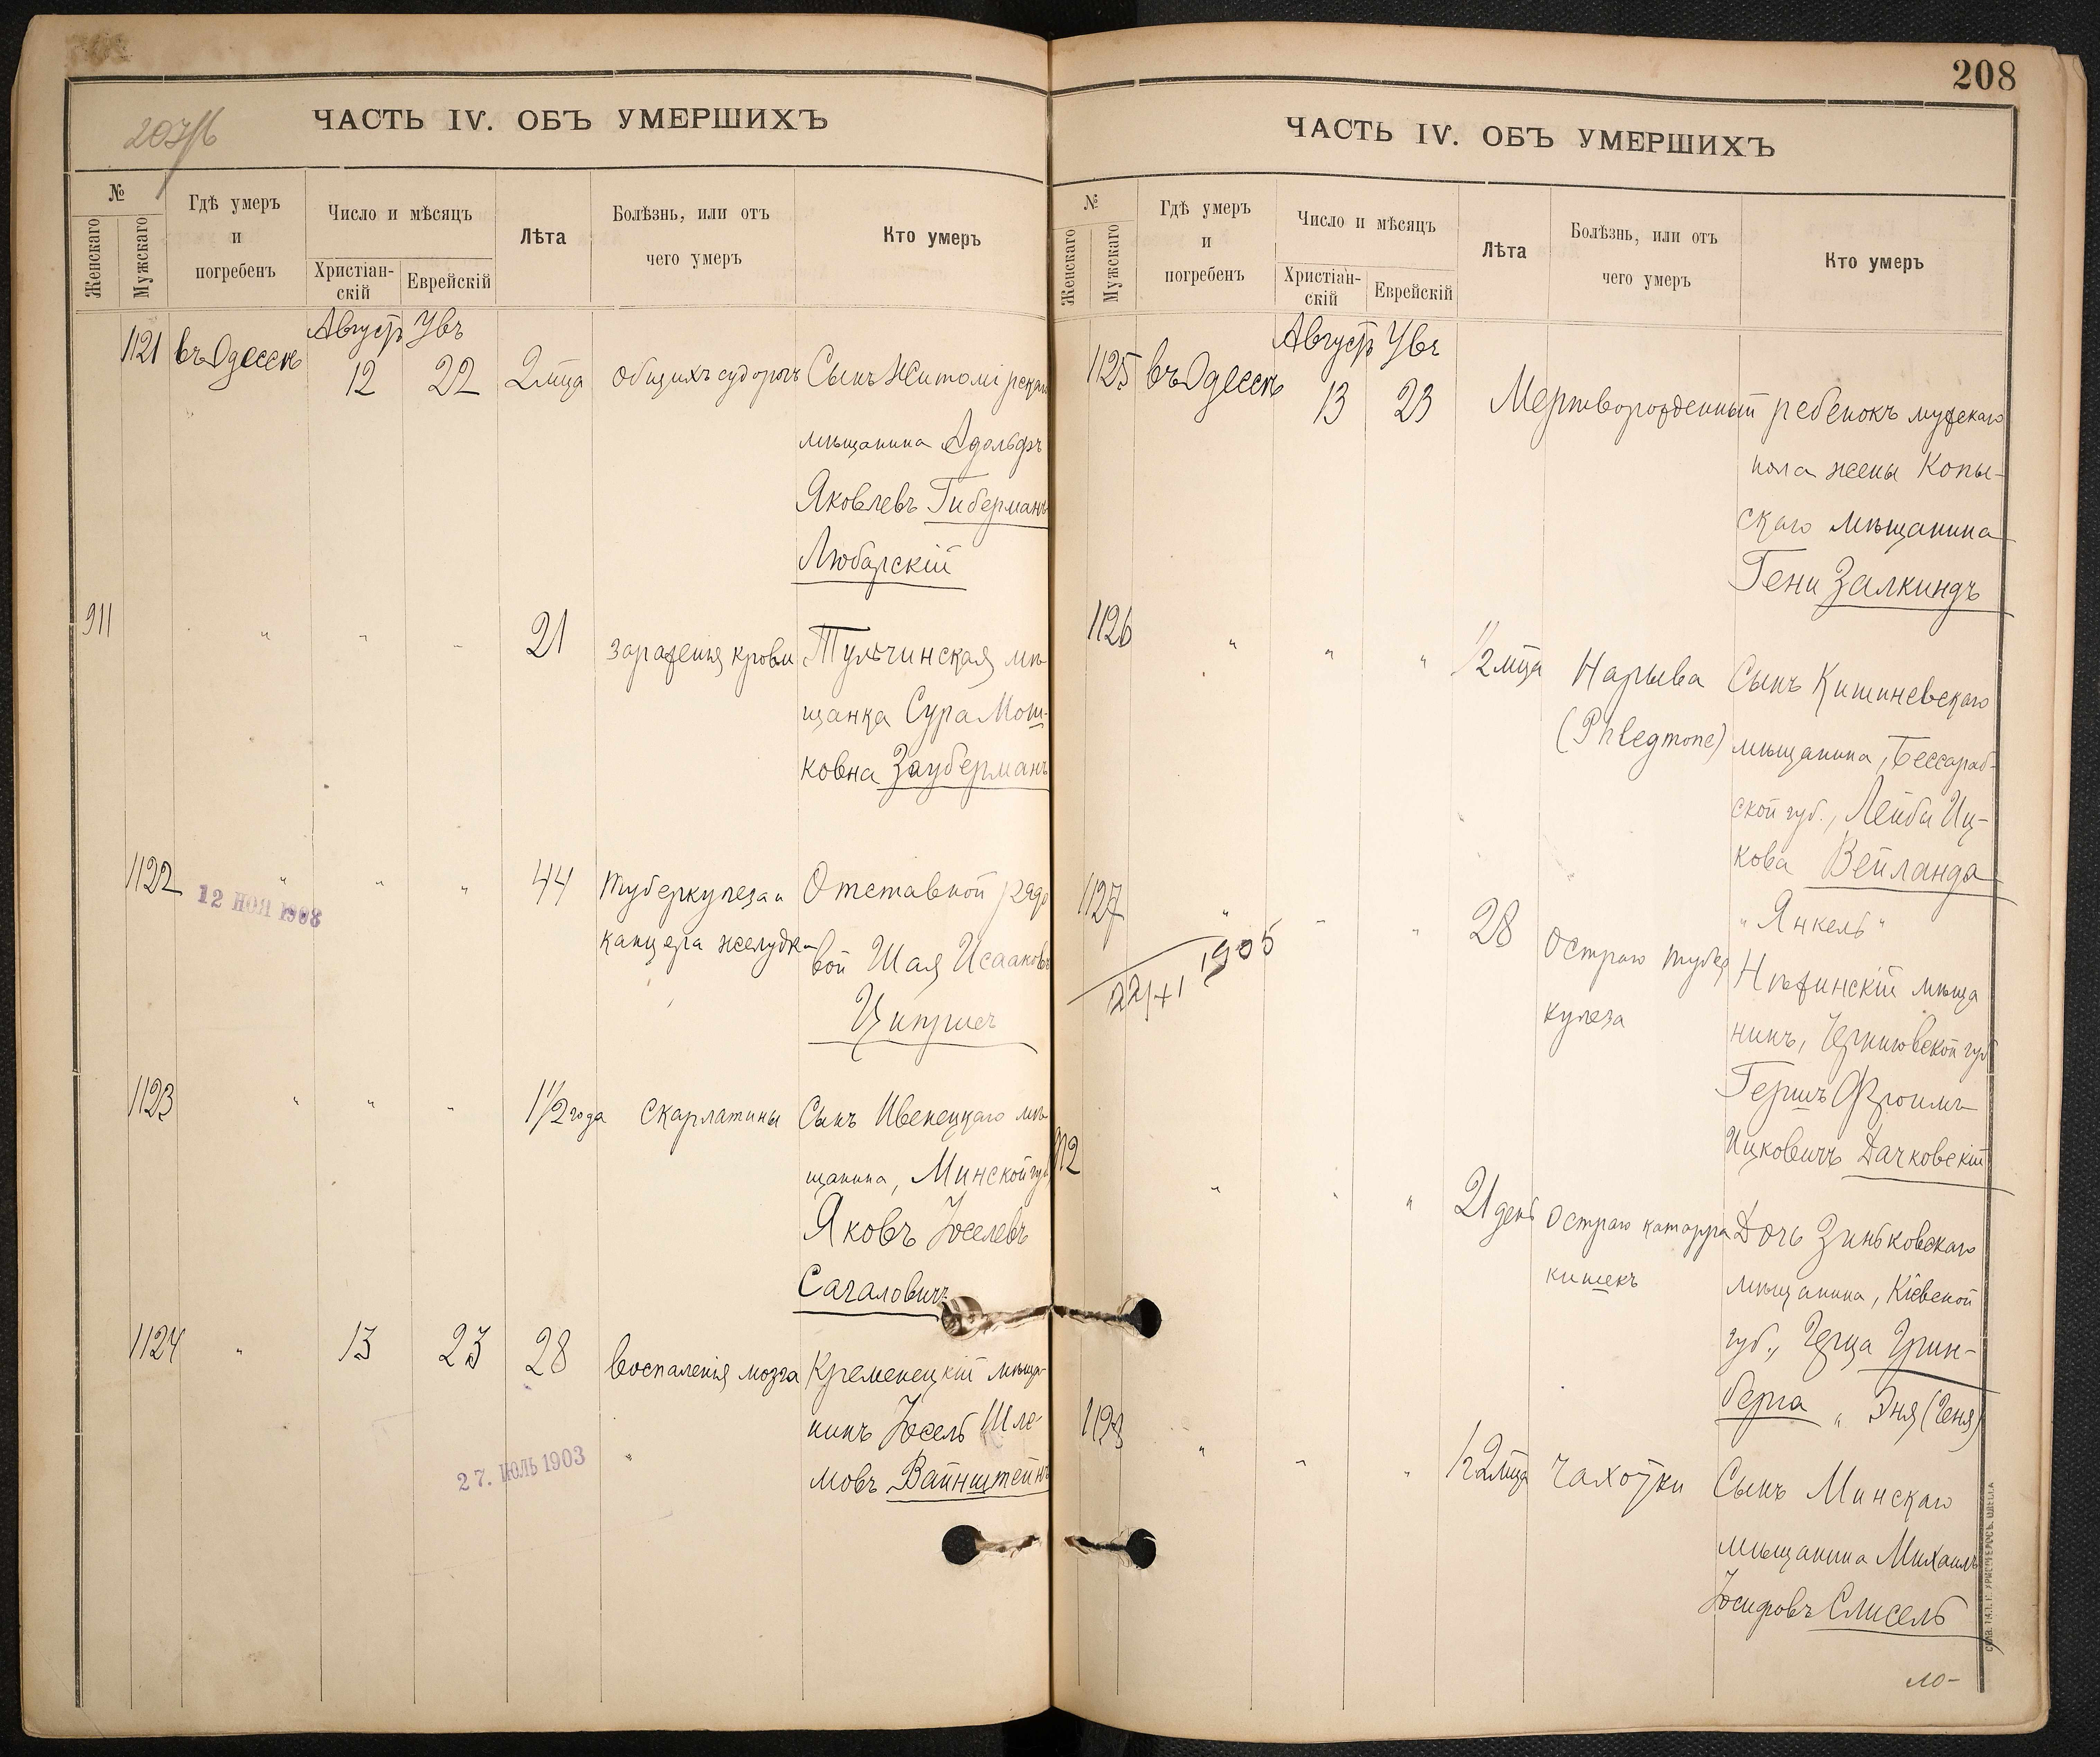 207/б
ЧАСТЬ IV. ОБЪ УМЕРШИХЪ
№
Женскаго
Мужскаго
Гдѣ умеръ
и
погребенъ
Число и мѣсяцъ
Христіан-
скій
Еврейскій
Лѣта
Болѣзнь, или отъ
чего умеръ
Кто умеръ
Августъ Увъ
1121 въ Одессѣ 12 22 2 мца общихъ судорогъ Сынъ Житомірскаго
мѣщанина Адольфъ
Яковлевъ Гиберманъ
Любарскій
911 " " " 21 зараженія крови Тульчинская мѣ
щанка Сура Мош-
ковна Зауберманъ
1122 " " " 44 туберкулеза и Отставной рядо
12 НОЯ 1908
канцера желудка вой Шая Исааковъ
Циприсъ
1123 " " " 1 1/2 года скарлатины Сынъ Ивенецкаго мѣ
щанина, Минской губ
Яковъ Іоселевъ
Сагаловичъ
1124 " 13 23 28 воспаленія мозга Кременецкій мѣща-
нинъ Іосель Шле-
мовъ Вайнштейнъ
27. ІЮЛЬ 1903
208
ЧАСТЬ IV. ОБЪ УМЕРШИХЪ
№
Женскаго
Мужскаго
Гдѣ умеръ
и
погребенъ
Число и мѣсяцъ
Христіан-
скій
Еврейскій
Лѣта
Болѣзнь, или отъ
чего умеръ
Кто умеръ
Августъ Увъ
1125 въ Одессѣ 13 23 Мертворожденный ребенокъ мужскаго
пола жены Копы-
скаго мѣщанина
Гени Залкиндъ
1126 " " " 1/2 мца Нарыва Сынъ Кишиневскаго
(Phlegmone) мѣщанина, Бессараб-
ской губ., Лейбы Иц-
кова Вейланда
"Янкель"
1127 " " " 28 Остраго тубер Нѣжинскій мѣща
1905
кулеза нинъ, Черниговской губ
Гершъ Фроимъ
Ицковичъ Дачковскій
912 " " " 21 день Остраго катарра Дочь Зиньковскаго
кишекъ мѣщанина, Кіевской
губ., Герца Грин-
берга " Эня (Геня)
1128 " " " 1/2 мца чахотки Сынъ Минскаго
мѣщанина Михаилъ
Іосифовъ Слисель